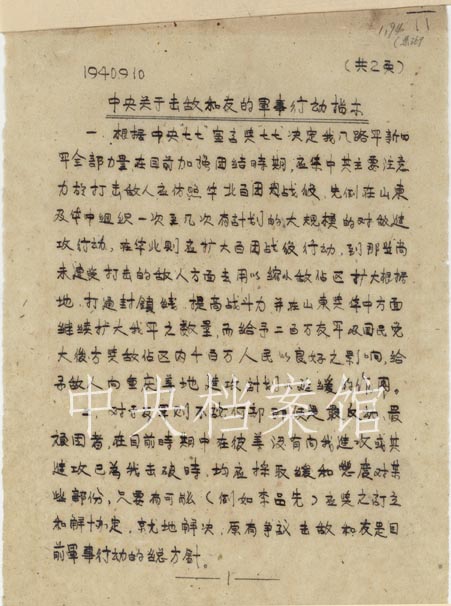 19400910
（共2页）
中央关于击敌和友的軍事行动指示
一、根据中央七七宣言与七七决定我八路军新四
军全部力量在目前加强团结時期，应集中其主要注意
力於打击敌人应仿照华北百团大战役先例在山東
及华中组织一次至几次有計划的大规模的对敌進
攻行动，在华北则应扩大百团战役行动，到那些尚
未遭受打击的敌人方面去用以縮小敌佔区扩大根据
地，打通封鎖线，提高战斗力并在山東与华中方面
继续扩大我军之数量，而给予二百万友军及国民党
大後方与敌佔区内千百万人民以良好之影响，给
予敌人向重庆等地進攻计划以延缓的作用。
二、对于友军则不论何部
强固者，在目前時期中在彼等没有向我進攻或其
進攻已為我击破時，均应採取緩和态度对某
些部份，只要有可能（例如李品先）应与之訂立
和解协定，就地解决，原有争议击敌和友是目
前軍事行动的総方針。
1
中央档案馆